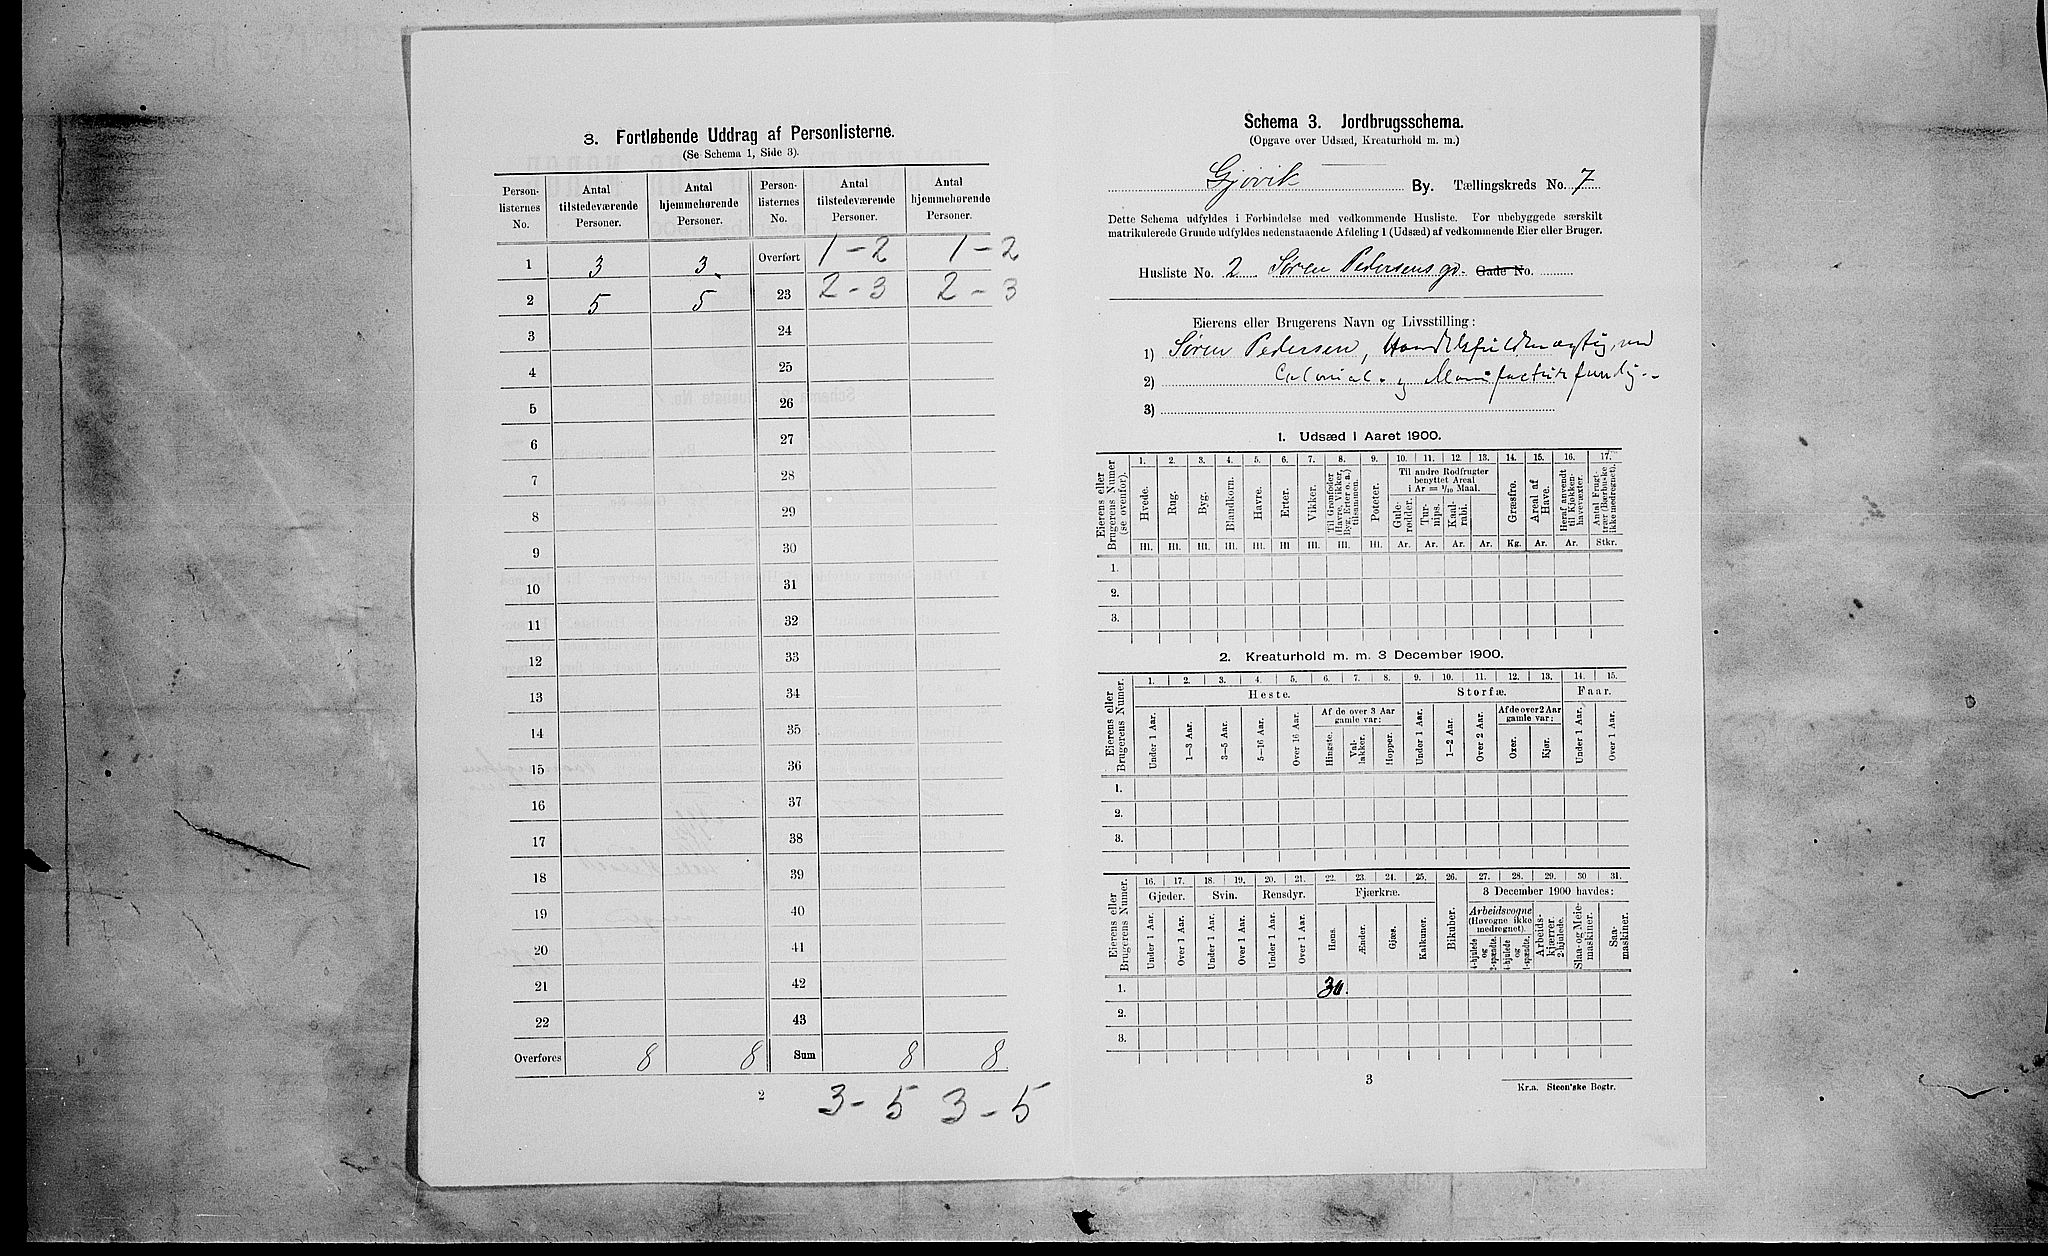 3. Fortløbende Uddrag af Personlisterne.
(Se Schema 1, Side 3).
Person-listernes No. | Antal tilstedeværende Personer. | Antal hjemmehørende Personer. | Person-listernes No. | Antal tilstedeværende Personer. | Antal hjemmehørende Personer.
1 | 3 | 3 | Overført | 1 - 2 | 1 - 2
2 | 5 | 5 | 23 | 2 - 3 | 2 - 3
3 | 24
4 | 25
5 | 26
6 | 27
7 | 28
8 | 29
9 | 30
10 | 31
11 | 32
12 | 33
13 | 34
14 | 35
15 | 36
16 | 37
17 | 38
18 | 39
19 | 40
20 | 41
21 | 42
22 | 43
Overføres | 8 | 8 | Sum | 8 | 8
2
3 - 5 3 - 5
Schema 3. Jordbrugsschema.
(Opgave over Udsæd, Kreaturhold m. m.)
Gjøvik By. Tællingskreds No. 7
Dette Schema udfyldes i Forbindelse med vedkommende Husliste. For ubebyggede særskilt
matrikulerede Grunde udfyldes nedenstaaende Afdeling 1 (Udsæd) af vedkommende Eier eller Bruger.
Husliste No. 2 Søren Pedersens gd. Gade No.
Eierens eller Brugerens Navn og Livsstilling:
1) Søren Pedersen, Handelsfuldmægtig, ved
2) Colonial- og Manifactur
3)
1. Udsæd i Aaret 1900.
Eierens eller Brugerens Numer (se ovenfor).
1. 2. 3. 4. 5. 6. 7. 8. 9. 10. 11. 12. 13. 14. 15. 16. 17.
Hvede. Rug. Byg. Blandkorn. Havre. Erter. Vikker. Til Grønfoder (Havre, Vikker, Byg, Erter o. a.) tilsammen. Poteter.
Til andre Rodfrugter
benyttet Areal
i Ar = 1/10 Maal.
Gulerødder. Turnips. Kaalrabi.
Græsfrø. Areal af Have. Heraf anvendt til Kjøkkenhavevæxter. Antal Frugttrær (Bærbuske ikke medregnet).
Hl. Hl. Hl. Hl. Hl. Hl. Hl. Hl. Hl. Ar. Ar. Ar. Ar. Kg. Ar. Ar. Stkr.
1.
2.
3.
2. Kreaturhold m. m. 3 December 1900.
Eierens eller Brugerens Numer.
1. 2. 3. 4. 5. 6. 7. 8. 9. 10. 11. 12. 13. 14. 15.
Heste. Storfæ. Faar.
Under 1 Aar. 1—3 Aar. 3—5 Aar. 5—16 Aar. Over 16 Aar.
Af de over 3 Aar gamle var:
Hingste. Vallakker. Hopper.
Under 1 Aar. 1—2 Aar. Over 2 Aar.
Af de over 2 Aar gamle var:
Oxer. Kjør.
Under 1 Aar. Over 1 Aar.
1.
2.
3.
Eierens eller Brugerens Numer.
16. 17. 18. 19. 20. 21. 22. 23. 24. 25. 26. 27. 28. 29. 30 31.
Gjeder. Svin. Rensdyr. Fjærkræ.
Under 1 Aar. Over 1 Aar. Under 1 Aar. Over 1 Aar. Under 1 Aar. Over 1 Aar. Høns. Ænder. Gjæs. Kalkuner. Bikuber.
3 December 1900 havdes:
Arbeidsvogne (Høvogne ikke medregnet).
4-hjulede og 2-spændte. 4-hjulede og 1-spændte.
Arbeidskjærrer, 2-hjulede. Slaa- og Meiemaskiner. Saamaskiner.
1. 30.
2.
3.
3
Kr.a. Steen'ske Bogtr.